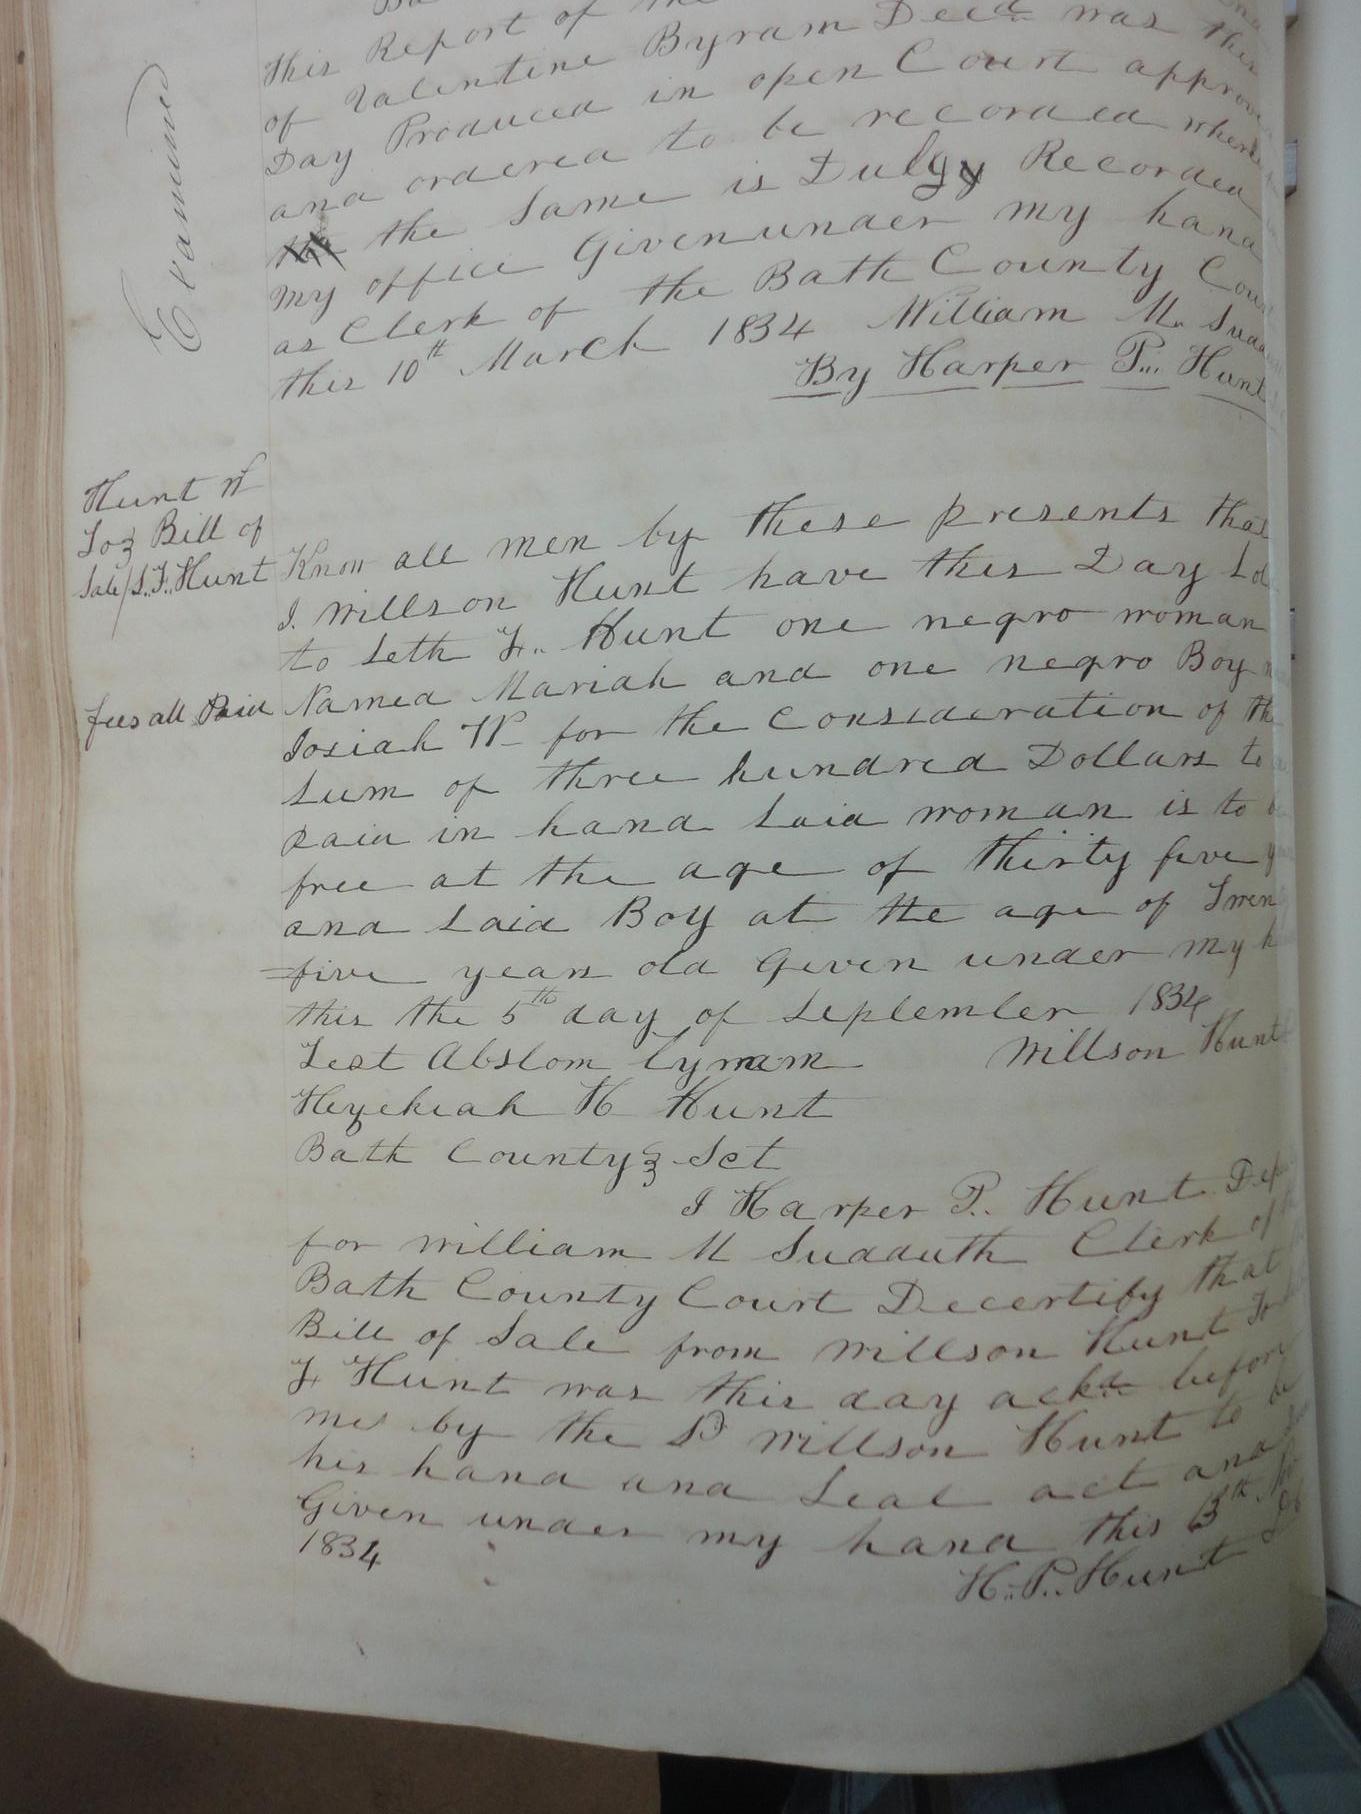 This Report of the
of Valentine Byram Decd was this
Day Produced in open Court approve
and ordered to be recorded where
the the Same is Duly Recorded
my office Given under my hand
as Clerk of the Bath County Cou
this 10th March 1834 William M. Sudd
By Harper P. Hunt
Examined
Hunt W
To Bill of
Sale / S. F. Hunt
fees all Paid
Know all men by these presents that
I. Willson Hunt have this Day Sol
to Seth F. Hunt one negro woman
Named Mariah and one negro Boy
Josiah W for the consideration of th
Sum of three hundred Dollars to
paid in hand Said woman is to b
free at the age of thirty five y
and Said Boy at the age of Twen
=five years old Given under my h
this the 5th day of September 1834
Test Abslom Cyram Willson Hunt
Hezekiah H Hunt
Bath County Sct
I Harper P. Hunt Dep
for William M Sudduth Clerk of
Bath County Court Decertify that
Bill of Sale from Willson Hunt To
F Hunt was this day ackd before
me by the Sd Willson Hunt to be
his hand and Seal act and
Given under my hand this 13th
1834
H. P. Hunt